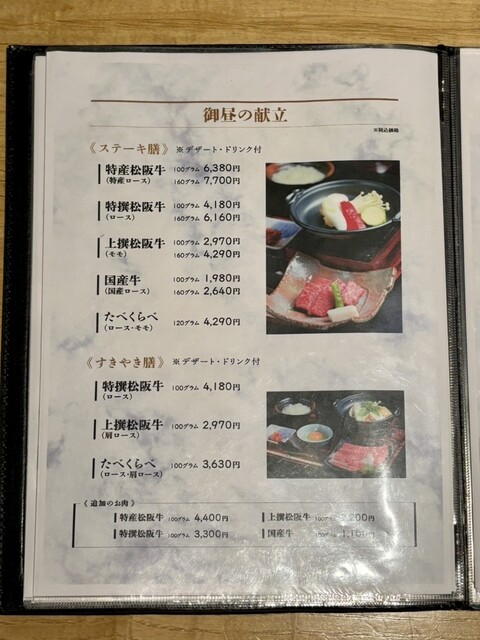 御昼の献立
※税込価格
《ステーキ膳》 ※デザート・ドリンク付
特産松阪牛 100グラム 6,380円
(特産ロース) 160グラム 7,700円
特撰松阪牛 100グラム 4,180円
(ロース) 160グラム 6,160円
上撰松阪牛 100グラム 2,970円
(モモ) 160グラム 4,290円
国産牛 100グラム 1,980円
(国産ロース) 160グラム 2,640円
たべくらべ 120グラム 4,290円
(ロース・モモ)
《すきやき膳》 ※デザート・ドリンク付
特撰松阪牛 100グラム 4,180円
(ロース)
上撰松阪牛 100グラム 2,970円
(肩ロース)
たべくらべ 100グラム 3,630円
(ロース・肩ロース)
《追加のお肉》
特産松阪牛 100グラム 4,400円
上撰松阪牛 100グラム 2,200円
特撰松阪牛 100グラム 3,300円
国産牛 100グラム 1,100円